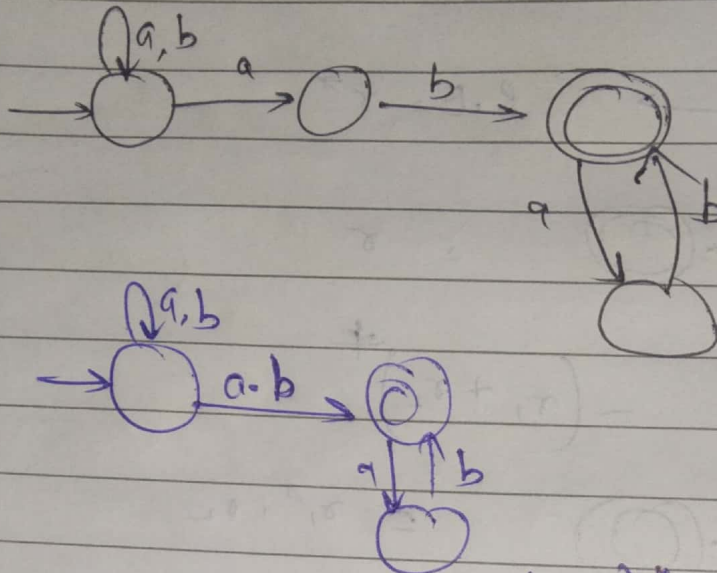 a, b
a
b
a
b
a, b
a. b
a
b